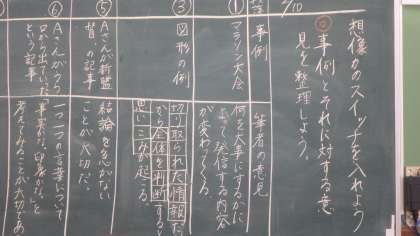 /10
想像力のスイッチを入れよう
◎事例とそれに対する意
見を整理しよう。
事例
筆者の意見
①
マラソン大会
何を大事にするかに
よって発信する内容
が変わってくる。
③
図形の例
切り取られた情報だけ
から全体を判断すると
思いこみが起こる。
⑤
Aさんが新監
督の記事
結論を急がない
ことが大切だ。
⑥
Aさんがウラ
口から出ていった
という記事
一つ一つの言葉について
「事実かな、印象かな。」と
考えてみることが大切であ